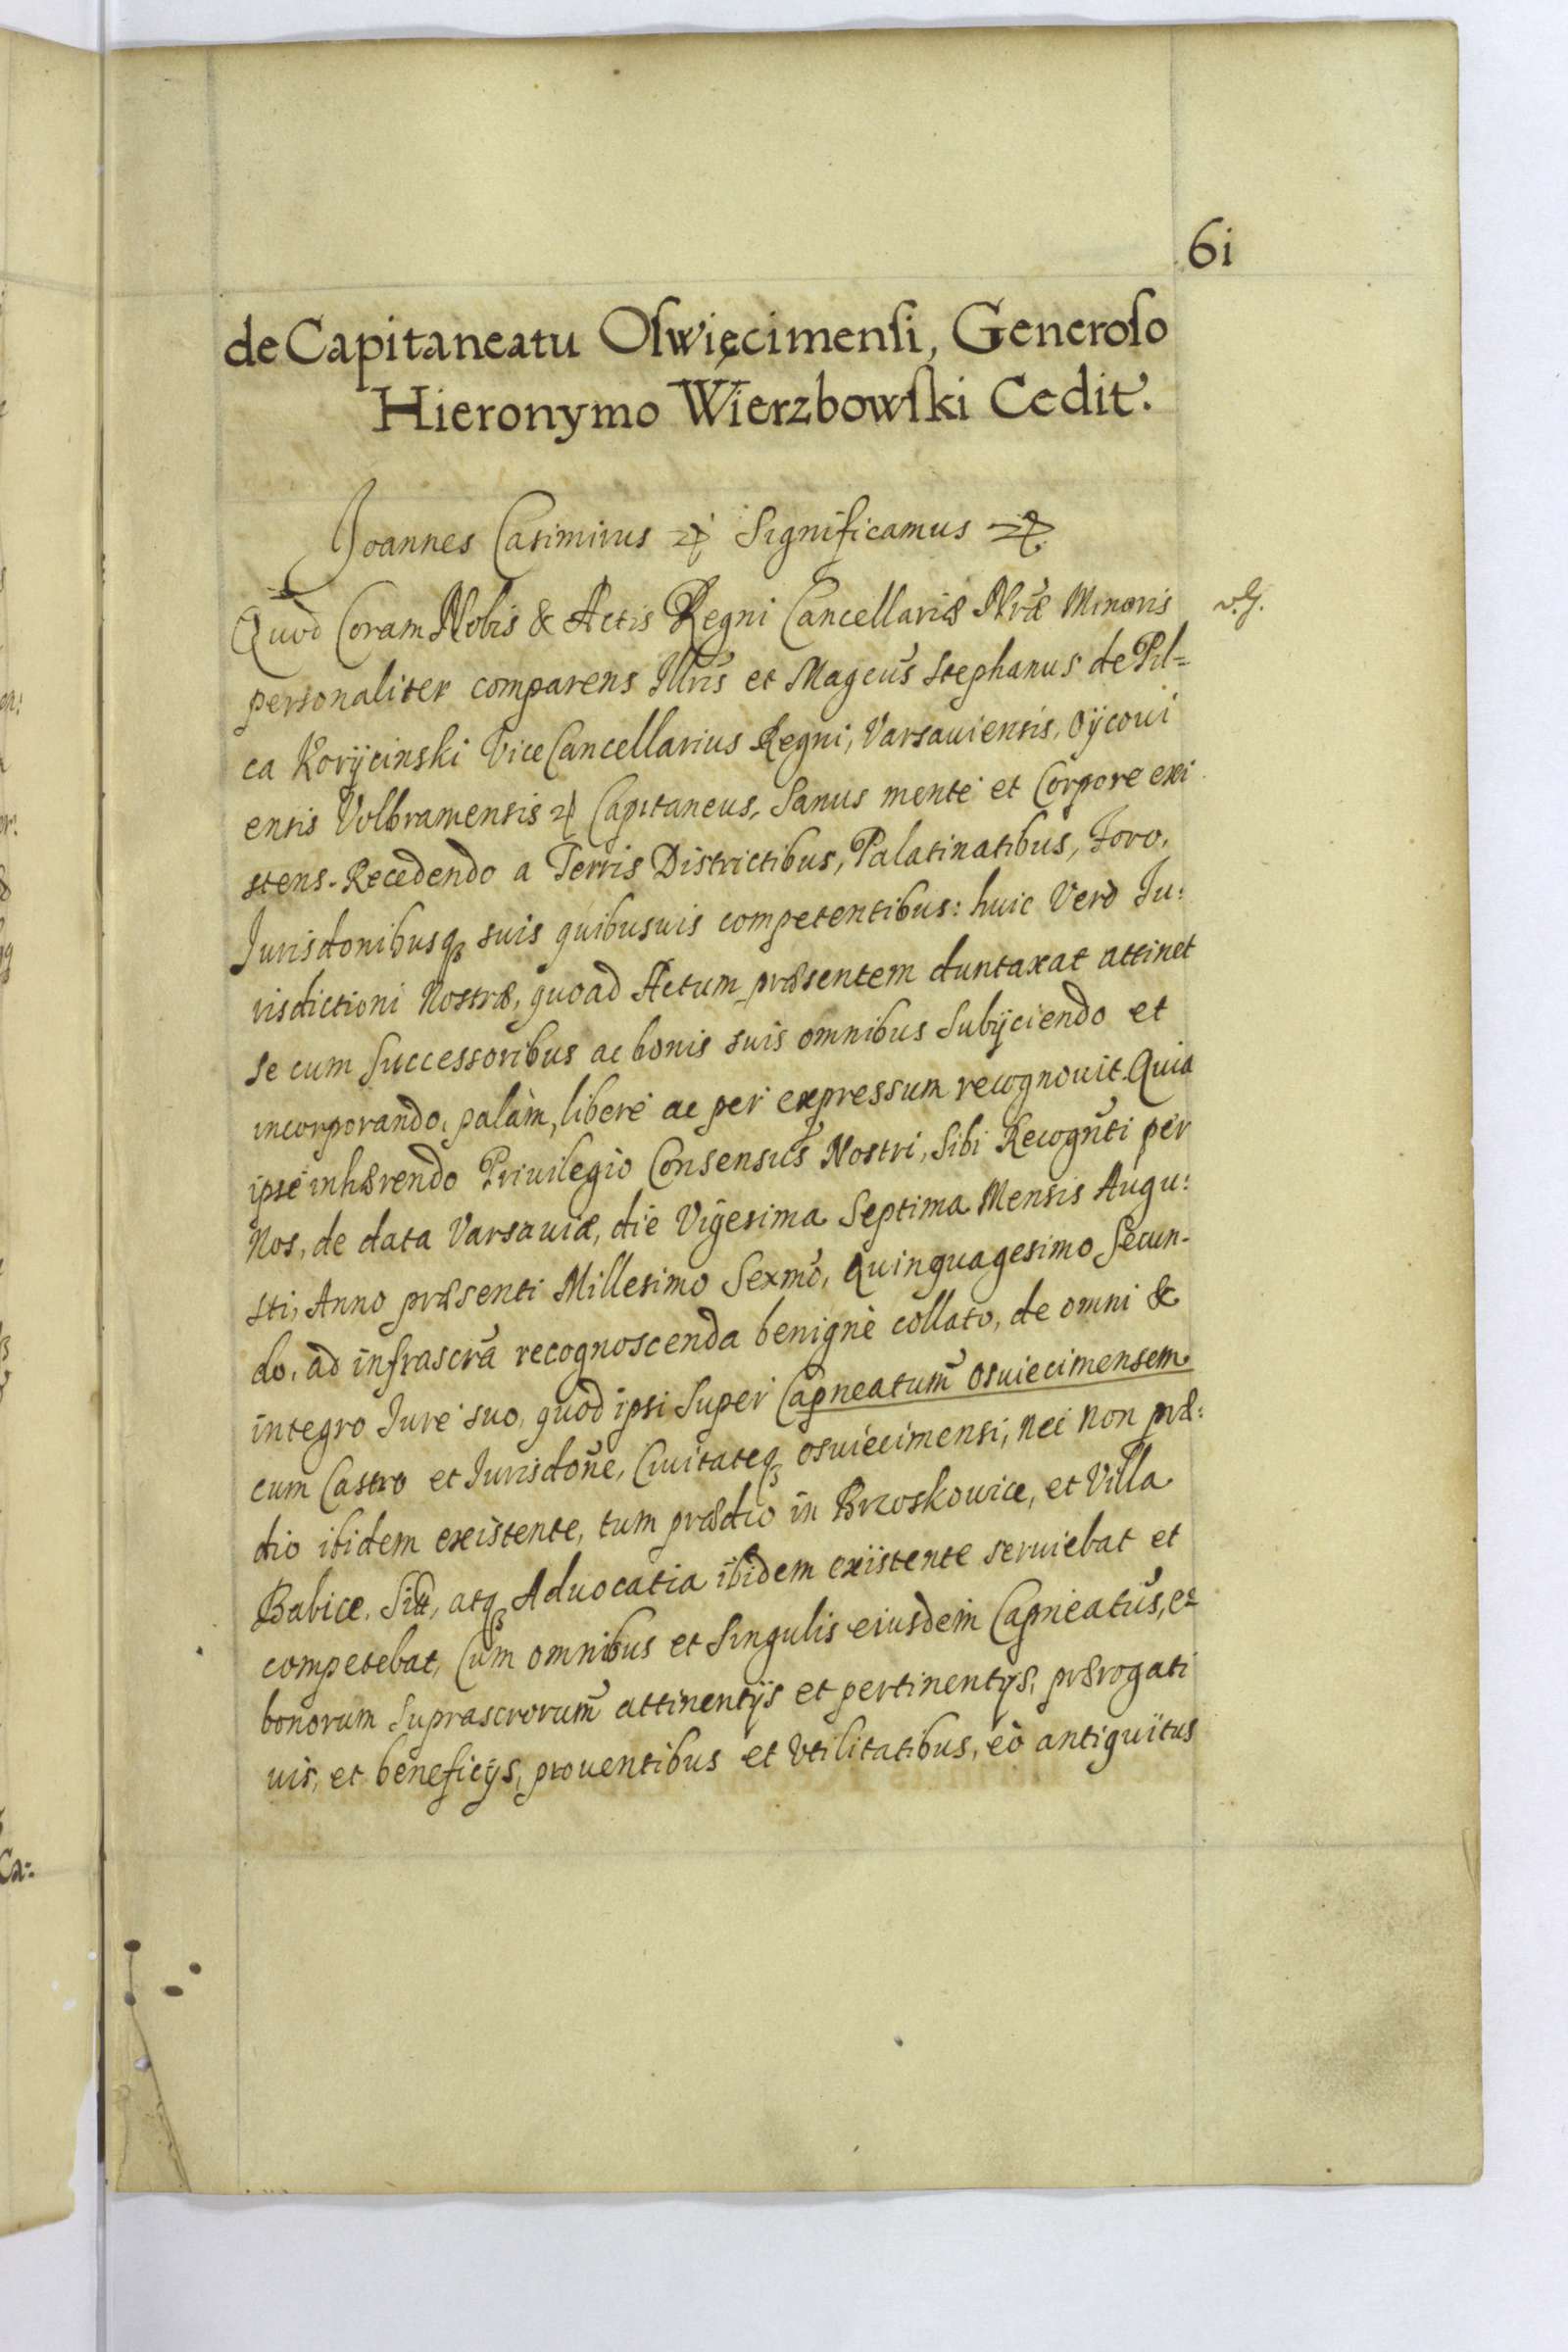 61
de Capitaneatu Oſwięcimenſi, Generoſo
Hieronymo Wierzbowſki Cedit.
Joannes Casimirus Significamus
Quod Coram Nobis & Actis Regni Cancellariæ Nr̃æ Minoris
personaliter comparens Illr̃is et Magcus̃ Stephanus de Pil=
ca Korÿcinski Vice Cancellarius Regni, Varsauiensis, Oÿcoui
ensis Volbramensis Capitaneus, Sanus mente et Corpore exi
stens. Recedendo a Terris Districtibus, Palatinatibus, Foro,
Jurisdonibusq₃ suis quibusuis competentibus: huic Verò Ju:
risdictioni Nostræ, quoad Actum præsentem duntaxat attinet
se cum Successoribus ac bonis suis omnibus Subÿciendo et
incorporando, palàm, liberè ac per expressum recognouit. Quia
ipse inhærendo Priuilegio Consensus Nostri, Sibi Recogñti per
Nos, de data Varsauiæ, die Vigesima Septima Mensis Augu:
sti, Anno præsenti Millesimo Sexmõ, Quinquagesimo Secun-
do, ad infrascrã recognoscenda benignè collato, de omni &
integro Jure suo, quod ipsi Super Capneatum̃ osuiecimensem
cum Castro et Jurisdoñe, Ciuitateq₃ osuiecimensi, nec non præ:
dio ibidem existente, tum prædio in Brzoskouice, et Villa
Babice, atq₃ Aduocatia ibidem existente seruiebat et
competebat, Cum omnibus et Singulis eiusdem Capneatus̃, et
bonorum Suprascrorum̃ attinentÿs et pertinentÿs, prærogati
uis, et beneficÿs, prouentibus et Vtilitatibus, eò antiquitus